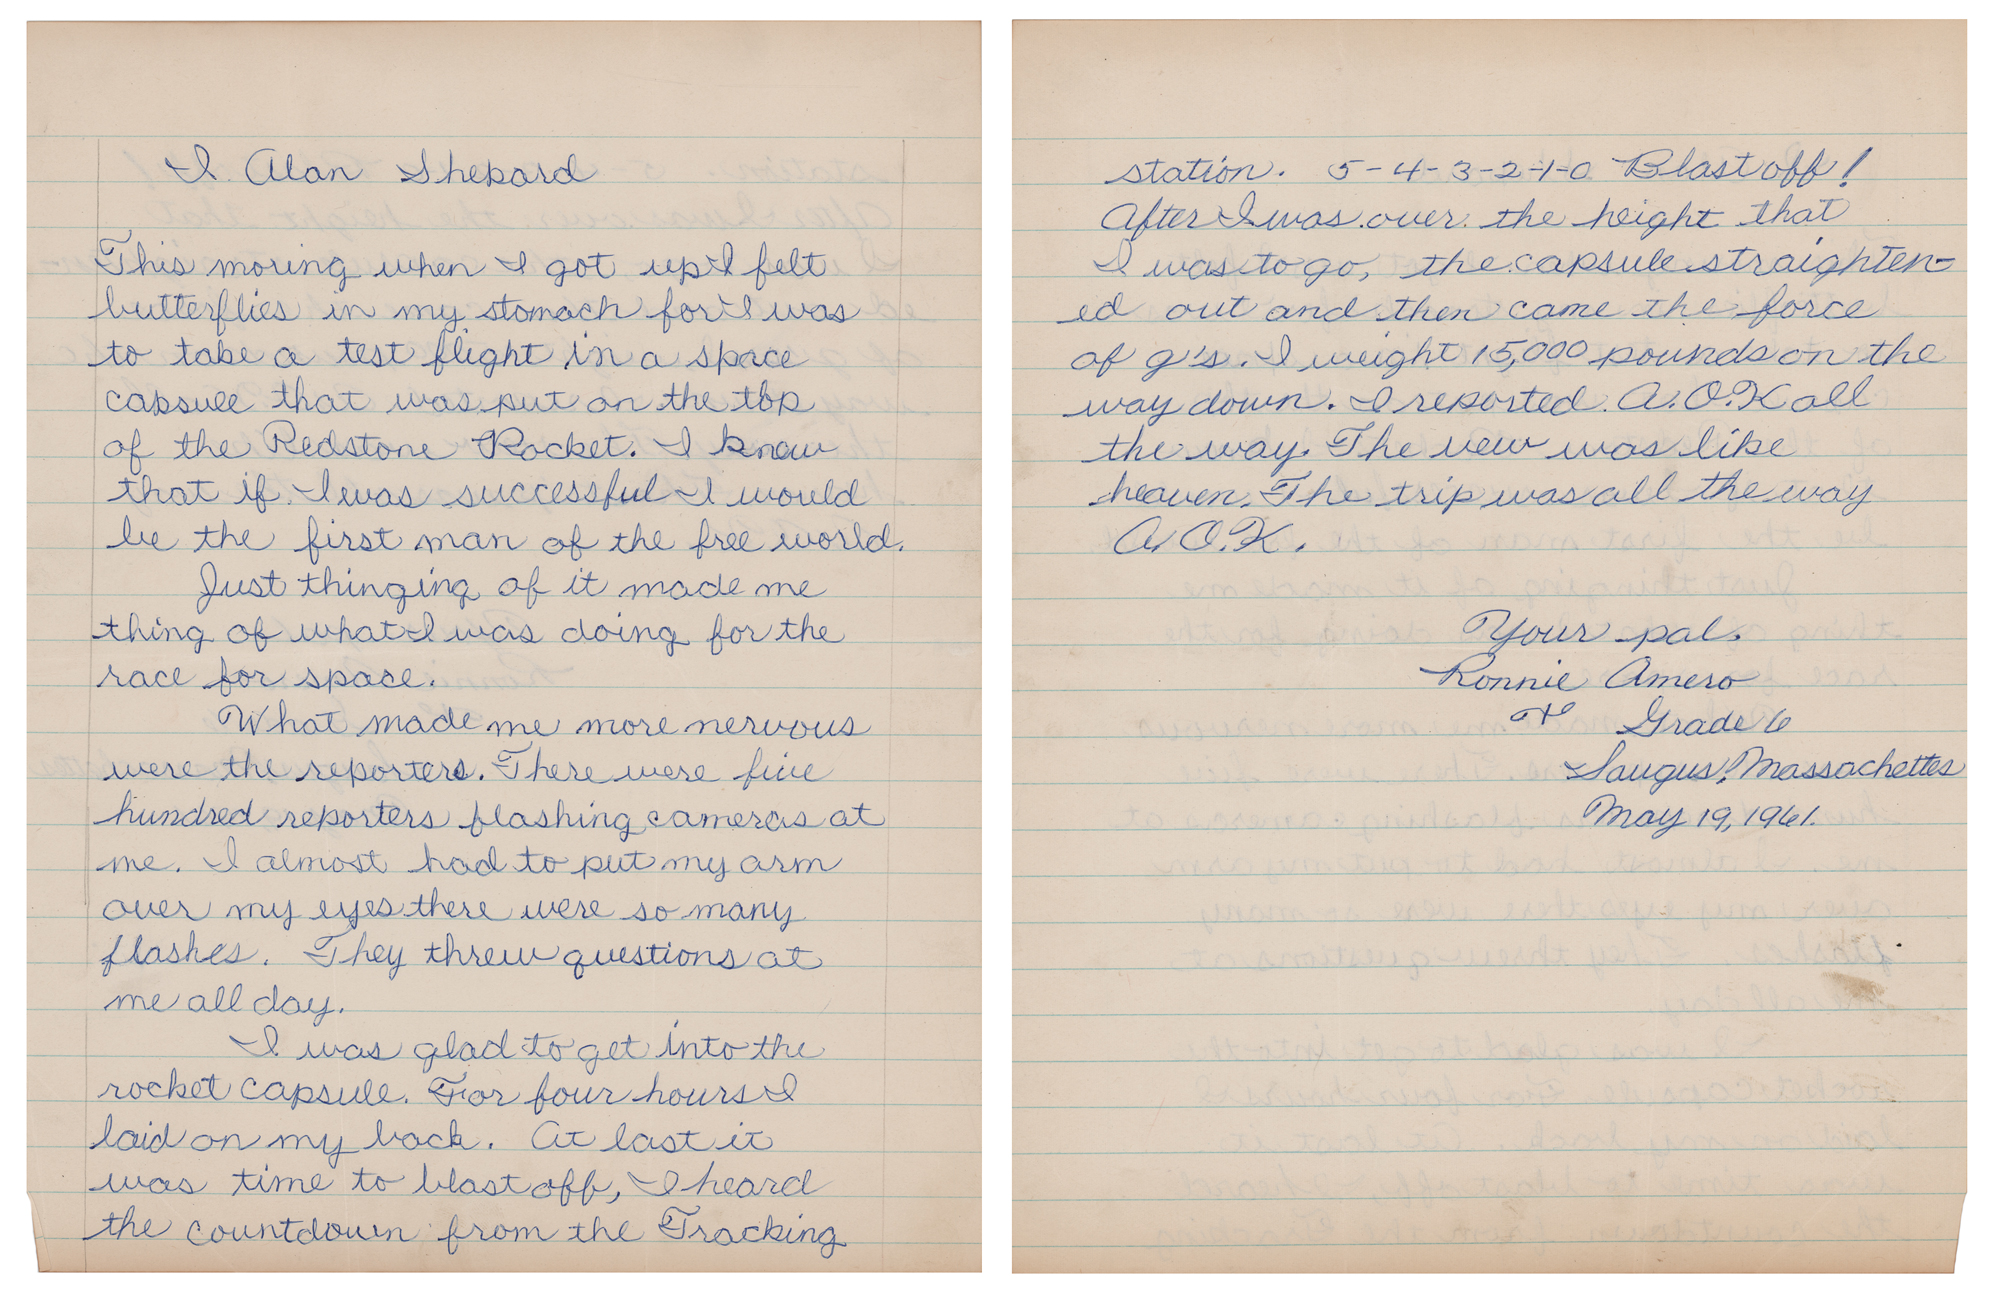 I Alan Shepard
This moring when I got up I felt
butterflies in my stomach for I was
to take a test flight in a space
capsule that was put on the top
of the Redstone Rocket. I knew
that if I was successful I would
be the first man of the free world.
Just thinging of it made me
thing of what I was doing for the
race for space.
What made me more nervous
were the reporters. There were five
hundred reporters flashing cameras at
me. I almost had to put my arm
over my eyes there were so many
flashes. They threw questions at
me all day.
I was glad to get into the
rocket capsule. For four hours I
laid on my back. At last it
was time to blast off, I heard
the countdown from the Tracking
station. 5-4-3-2-1-0 Blast off!
After I was over the height that
I was to go, the capsule straighten-
ed out and then came the force
of g's. I weight 15,000 pounds on the
way down. I reported A.O.K all
the way. The vew was like
heaven. The trip was all the way
A.O.K.
Your pal.
Ronnie Amero
Grade 6
Saugus, Massachettes
May 19, 1961.